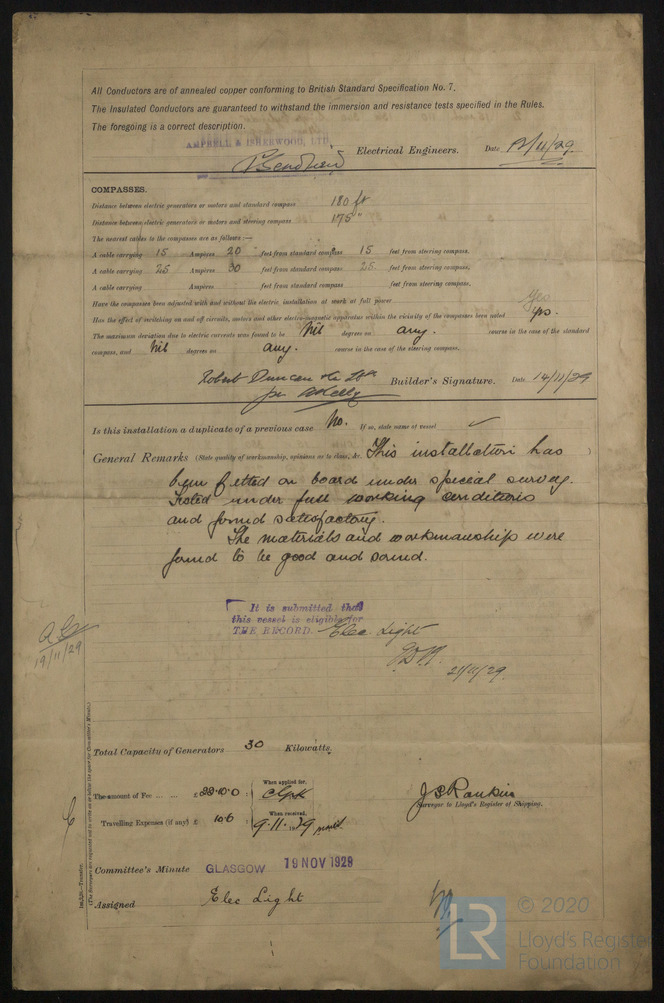 All Conductors are of annealed copper conforming to British Standard Specification No. 7.
The Insulated Conductors are guaranteed to withstand the immersion and resistance tests specified in the Rules.
The foregoing is a correct description.
AMPBELL & ISHERWOOD, LTD.
Electrical Engineers. Date /11/29
COMPASSES.
Distance between electric generators or motors and standard compass 180 ft
Distance between electric generators or motors and steering compass 175 "
The nearest cables to the compasses are as follows:—
A cable carrying 15 Ampères 20 feet from standard compass 15 feet from steering compass.
A cable carrying 25 Ampères 30 feet from standard compass 25 feet from steering compass.
A cable carrying Ampères feet from standard compass feet from steering compass.
Have the compasses been adjusted with and without the electric installation at work at full power Yes
Has the effect of switching on and off circuits, motors and other electro-magnetic apparatus within the vicinity of the compasses been noted yes.
The maximum deviation due to electric currents was found to be Nil degrees on any. course in the case of the standard
compass, and Nil degrees on any. course in the case of the steering compass.
Robert Duncan & Co Ltd
per Builder's Signature. Date 14/11/29
Is this installation a duplicate of a previous case No. If so, state name of vessel
General Remarks (State quality of workmanship, opinions as to class, &c. This installation has
been fitted on board under special survey.
Tested under full working conditions
and found satisfactory.
The materials and workmanship were
found to be good and sound.
It is submitted that
this vessel is eligible for
THE RECORD. Elec. Light
21/11/29.
19/11/29
Total Capacity of Generators 30 Kilowatts.
The amount of Fee ... ... £ 22:10:0 When applied for,
Travelling Expenses (if any) £ 10 6 When received,
9.11.1929
J S Rankin
Surveyor to Lloyd's Register of Shipping.
Committee's Minute GLASGOW 19 NOV 1929
Assigned Elec Light
(The Surveyors are requested not to write on or below the space for Committee's Minute.)
LR
© 2020
Lloyd's Register
Foundation